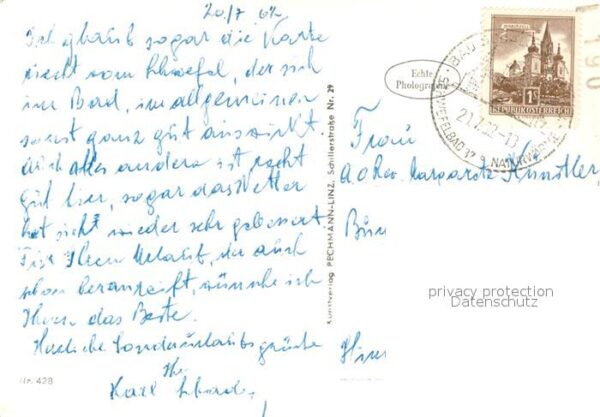 20/7 62
Ich glaub sogar die Karte
riecht vom Schwefel, der sich
im Bad, im allgemeinen
sonst ganz gut auswirkt.
Auch alles andere ist recht
gut hier, sogar das Wetter
hat sich wieder sehr gebessert.
Für Ihren Urlaub, der auch
schon heranreift, wünsche ich
Ihnen das Beste.
Herzliche Sonderurlaubsgrüße
Ihr
Karl
Nr. 428
Kunstverlag PECHMANN-LINZ, Schillerstraße Nr. 29
Echte
Photographie
MARIAZELL
1S
REPUBLIK ÖSTERREICH
BAD
21.7.62-13
SCHWEFELBAD
190
Frau
Margarete Künstler
privacy protection
Datenschutz